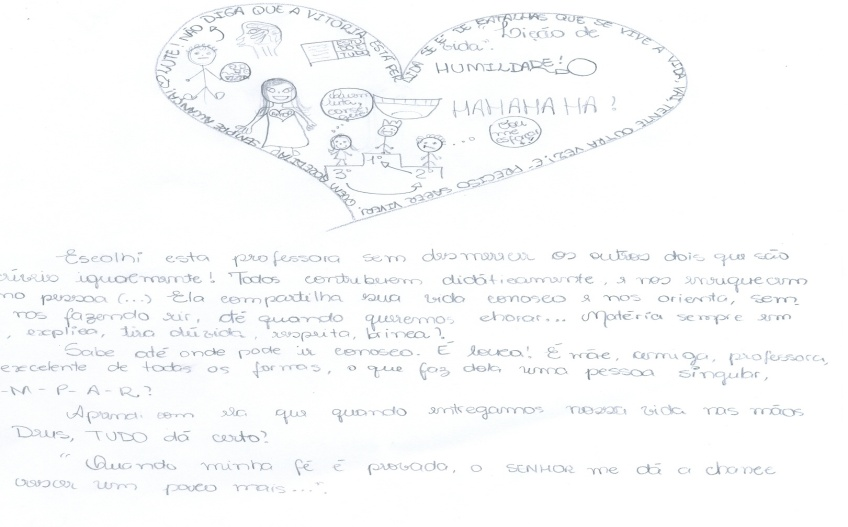 LUTE! NÃO DIGA QUE A VITÓRIA ESTÁ PERDIDA SE É DE BATALHAS QUE SE VIVE A VIDA VAI, TENTE OUTRA VEZ! É PRECISO SABER VIVER! QUEM ACREDITA SEMPRE ALCANÇA!
"Lição de
vida".
HUMILDADE!
HAHAHAHA!
3º 1º 2º
Escolhi esta professora sem desmerecer os outros dois que são
igualmente! Todos contribuem didáticamente, e nos enriquecem
pessoa (...) Ela compartilha sua vida conosco e nos orienta, sem
nos fazendo rir, até quando queremos chorar... Matéria sempre em
, explica, tira dúvida, respeita, brinca!
Sabe até onde pode ir conosco. É louca! É mãe, amiga, professora,
excelente de todas as formas, o que faz dela uma pessoa singular,
-M-P-A-R!
Aprendi com ela que quando entregamos nossa vida nas mãos
Deus, TUDO dá certo!
"Quando minha fé é provada, o SENHOR me dá a chance
crescer um pouco mais...".